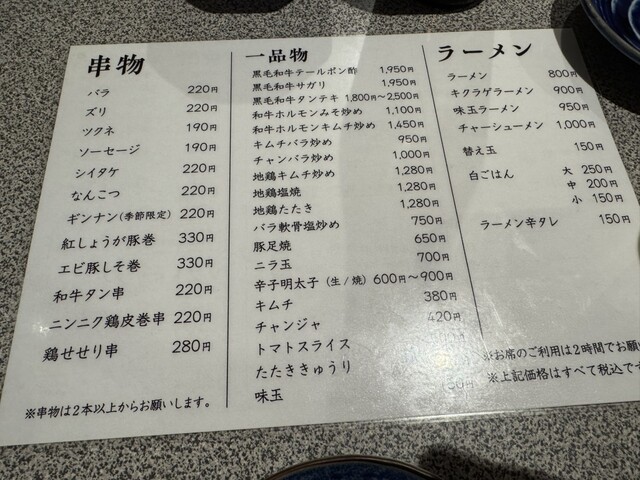 串物
バラ 220円
ズリ 220円
ツクネ 190円
ソーセージ 190円
シイタケ 220円
なんこつ 220円
ギンナン(季節限定) 220円
紅しょうが豚巻 330円
エビ豚しそ巻 330円
和牛タン串 220円
ニンニク鶏皮巻串 220円
鶏せせり串 280円
※串物は2本以上からお願いします。
一品物
黒毛和牛テールポン酢 1,950円
黒毛和牛サガリ 1,950円
黒毛和牛タンテキ 1,800円〜2,500円
和牛ホルモンみそ炒め 1,100円
和牛ホルモンキムチ炒め 1,450円
キムチバラ炒め 950円
チャンバラ炒め 1,000円
地鶏キムチ炒め 1,280円
地鶏塩焼 1,280円
地鶏たたき 1,280円
バラ軟骨塩炒め 750円
豚足焼 650円
ニラ玉 700円
辛子明太子(生/焼) 600円〜900円
キムチ 380円
チャンジャ 420円
トマトスライス
たたききゅうり
味玉
ラーメン
ラーメン 800円
キクラゲラーメン 900円
味玉ラーメン 950円
チャーシューメン 1,000円
替え玉 150円
白ごはん 大 250円
中 200円
小 150円
ラーメン辛タレ 150円
※お席のご利用は2時間でお願
※上記価格はすべて税込で